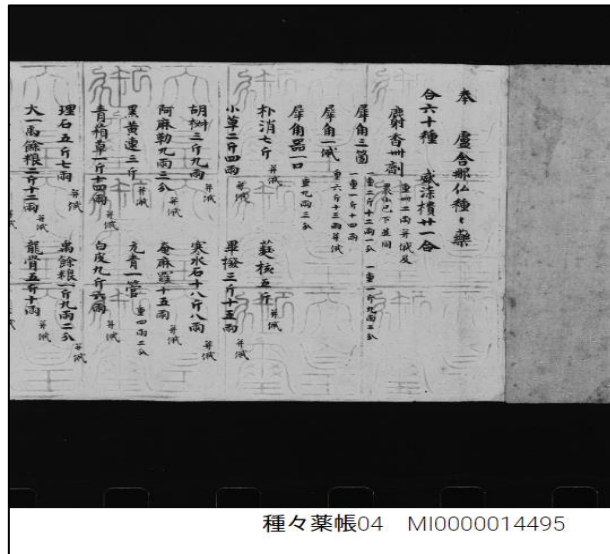 奉 盧舍那仏種〻藥
合六十種 盛漆樻廿一合
麝香卌劑 重卌二兩并帒及
裹仙已下並同
犀角三箇 一重二斤十二兩一分 一重一斤九兩二分
一重一斤十四兩
犀角一帒 重六斤十三兩并帒
犀角器一口 重九兩三分
朴消七斤 并帒 蕤核五斤 并帒
小草二斤四兩 并帒 畢撥三斤十五兩 并帒
胡椒三斤九兩 并帒 寒水石十八斤八兩 并帒
阿麻勒九兩三分 并帒 菴麻羅十五兩 并帒
黑黃連三斤 并帒 元青一管 重四兩二分
青葙草一斤十四兩 并帒 白皮九斤六兩 并帒
理石五斤七兩 并帒 禹餘粮一斤九兩二分 并帒
大一禹餘粮二斤十二兩 并帒 龍骨五斤十兩 并帒
種々薬帳04 MI0000014495